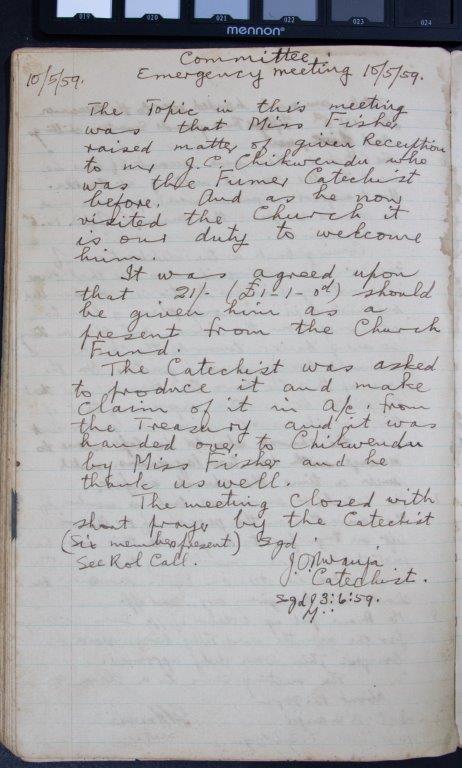 019 020 021 022 023 024
mennon
Committee
10/5/59. Emergency meeting 10/5/59.
The Topic in this meeting
was that Miss Fisher
raised matter of given Reception
to mr J. C. Chikwendu who
was the Fumer Catechist
before. And as he now
visited the Church it
is our duty to welcome
him.
It was agreed upon
that 21/- (£1-1-0d) should
be given him as a
present from the Church
Fund.
The Catechist was asked
to produce it and make
Claim of it in a/c. from
the Treasury and it was
handed over to Chikwendu
by Miss Fisher and he
thank us well.
The meeting closed with
short prayer by the Catechist
(Six members present) Sgd.
See Rol Call.
Catechist.
Sgd 3:6:59.